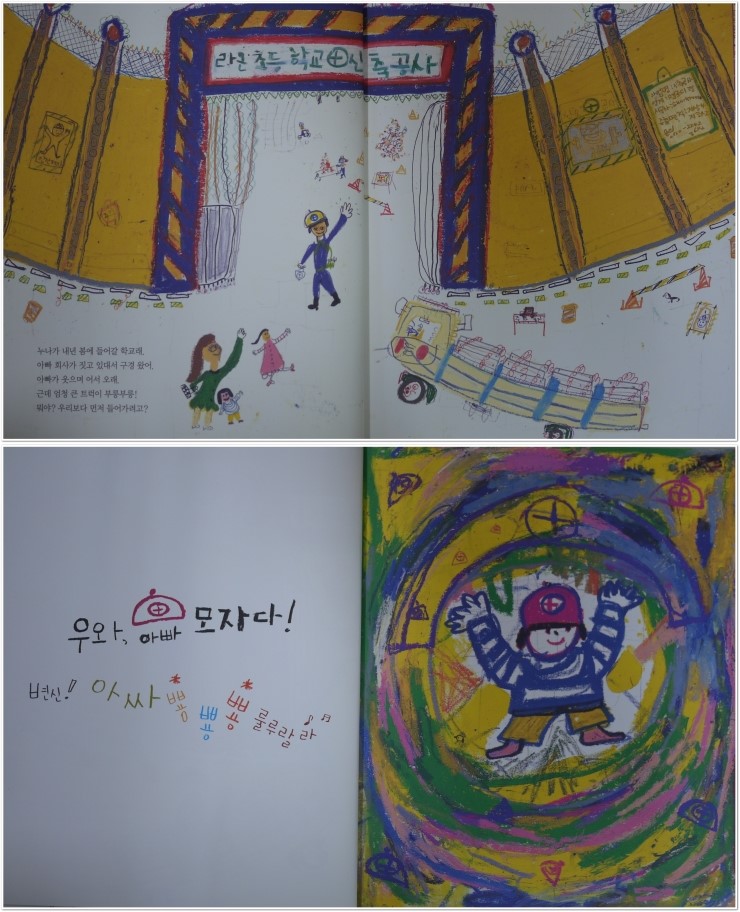 라온 초등 학교 신축 공사
누나가 내년 봄에 들어갈 학교래.
아빠 회사가 짓고 있대서 구경 왔어.
아빠가 웃으며 어서 오래.
근데 엄청 큰 트럭이 부릉부릉!
뭐야? 우리보다 먼저 들어가려고?
우와, 아빠 모자다!
변신! 아싸 뿅 뿅 뿅 룰루랄라